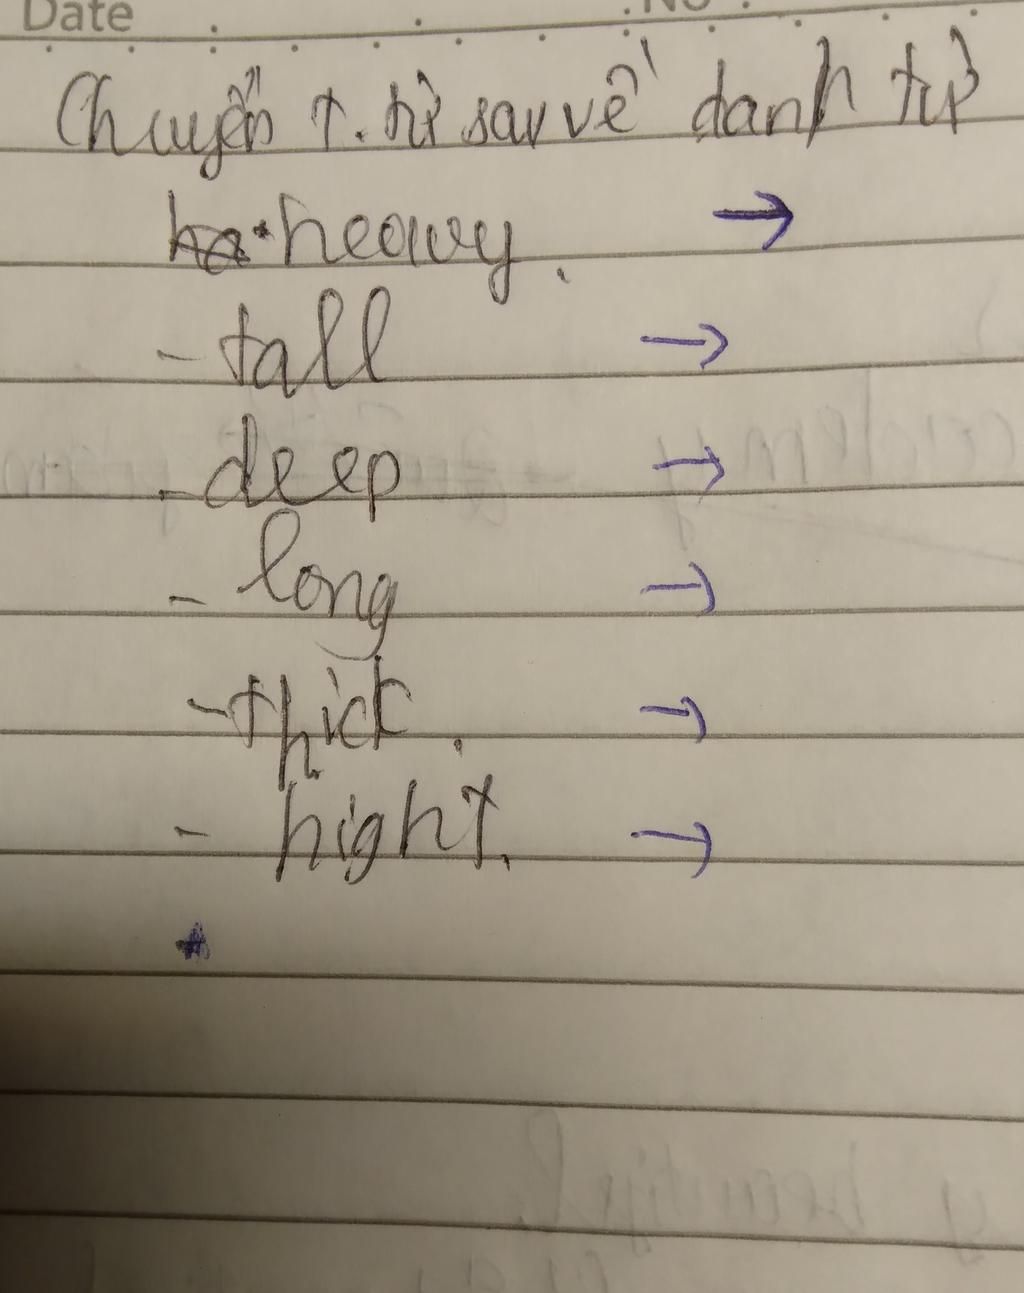 Date No
Chuyển t. từ sau về danh từ
heavy. →
- tall →
- deep →
- long →
- thick. →
- hight. →